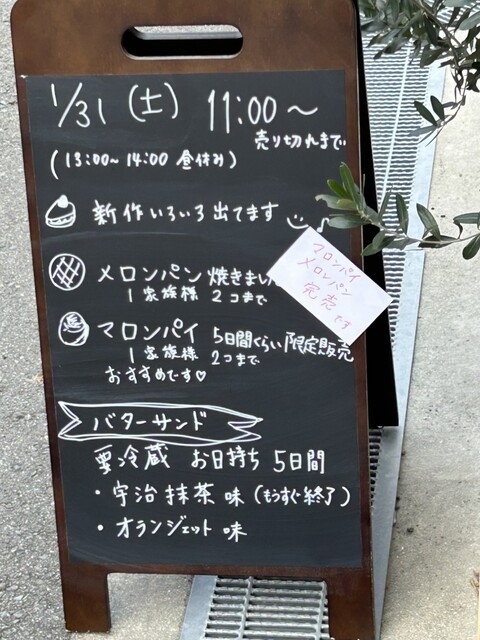 1/31（土） 11:00〜
売り切れまで
(13:00〜14:00 昼休み)
新作いろいろ出てます
メロンパン 焼きました
1家族様 2コまで
マロンパイ 5日間くらい限定販売
1家族様 2つまで
おすすめです♡
マロンパイ
メロンパン
完売です
バターサンド
要冷蔵 お日持ち 5日間
・宇治抹茶味（もうすぐ終了）
・オランジェット味